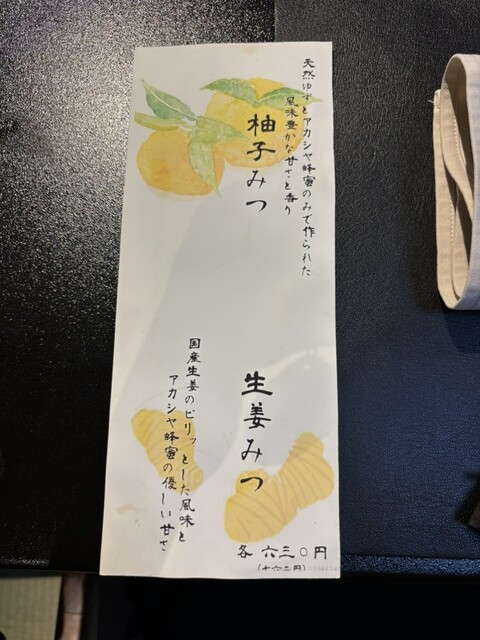 天然ゆずとアカシヤ蜂蜜のみで作られた
風味豊かな甘さと香り
柚子みつ
生姜みつ
国産生姜のピリッとした風味と
アカシヤ蜂蜜の優しい甘さ
各 六三〇円